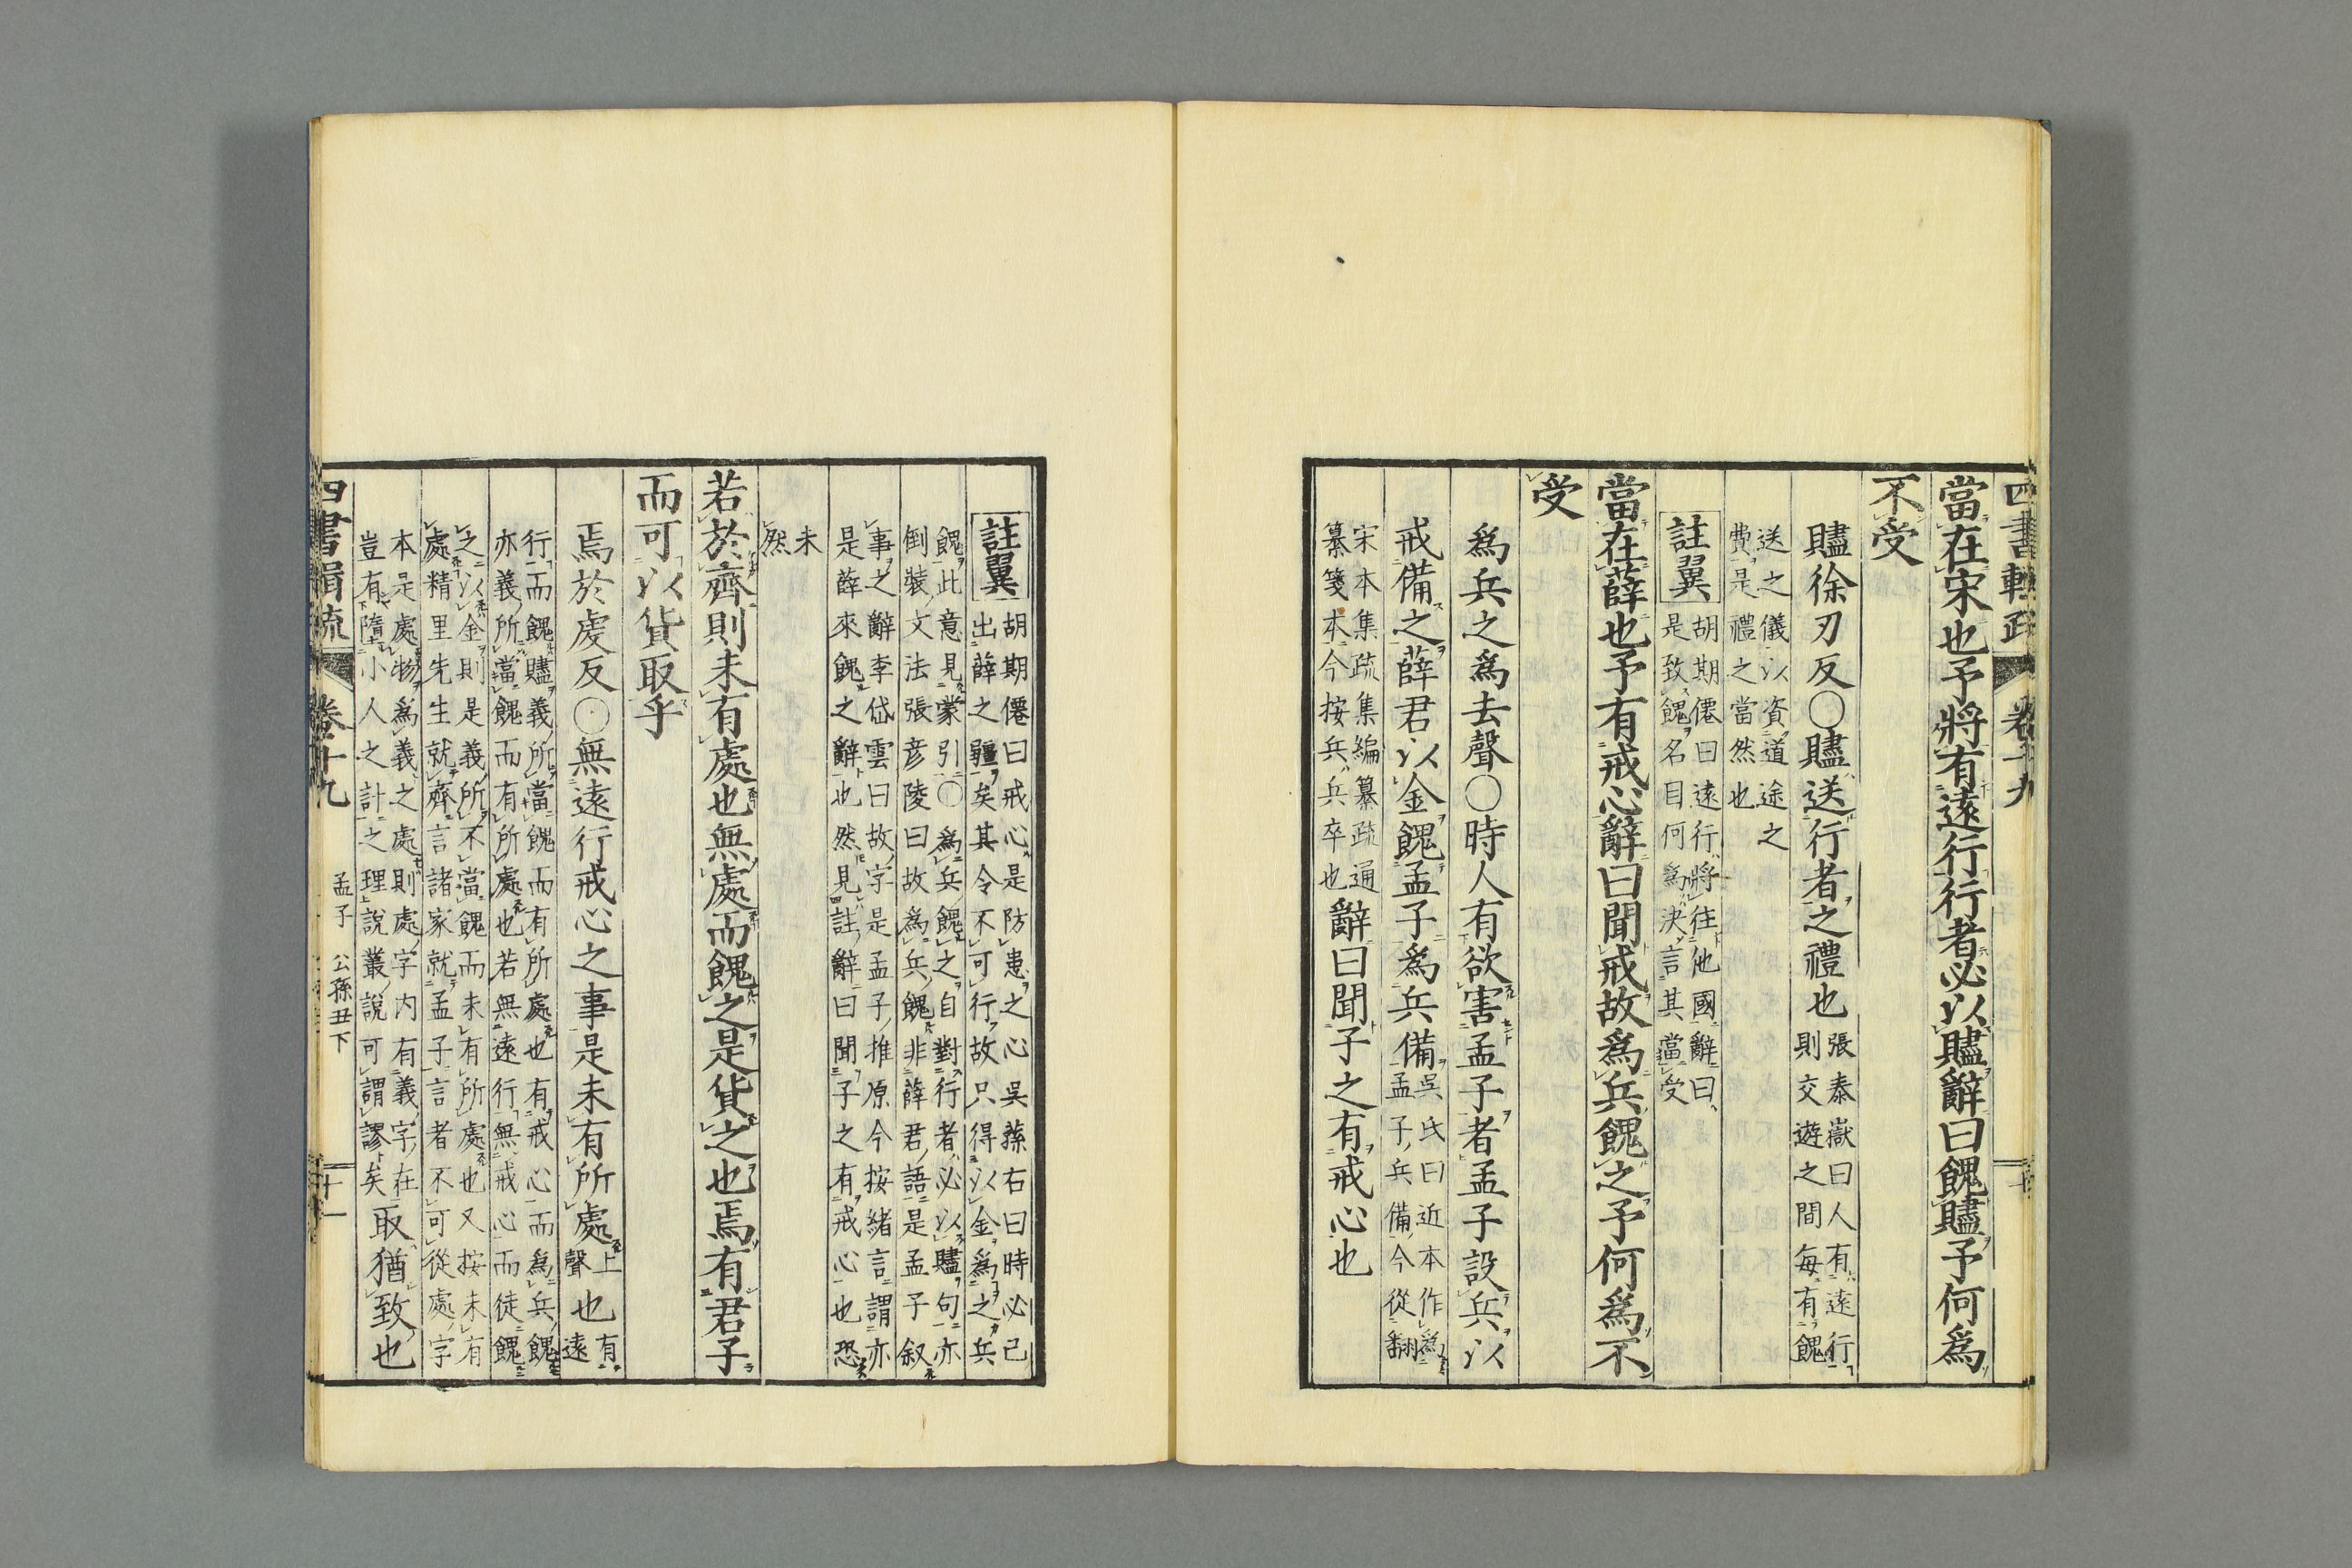 四書輯疏 卷十九
當在宋也予將有遠行行者必以贐辭曰餽贐予何爲
不受
贐徐刃反〇贐送行者之禮也張泰嶽曰人有遠行
則交遊之間每有餽
送之儀以資道途之
費是禮之當然也
註翼胡期僊曰遠行將往他國辭曰
是致餽名目何爲決言其當受
當在薛也予有戒心辭曰聞戒故爲兵餽之予何爲不
受
爲兵之爲去聲〇時人有欲害孟子者孟子設兵以
戒備之薛君以金餽孟子爲兵備吳氏曰近本作爲
孟子兵備今從翻
宋本集疏集編纂疏通
纂箋本今按兵兵卒也辭曰聞子之有戒心也
註翼胡期僊曰戒心是防患之心吳蓀右曰時必已
出薛之疆矣其令不可行故只得以金爲之兵
餽此意見蒙引〇爲兵餽之自對行者必以贐句亦
倒裝文法張彦陵曰故爲兵餽非薛君語是孟子叙
事之辭李岱雲曰故字是孟子推原今按緒言謂亦
是薛來餽之辭也然見註辭曰聞子之有戒心也恐
未
然
若於齊則未有處也無處而餽之是貨之也焉有君子
而可以貨取乎
焉於虔反〇無遠行戒心之事是未有所處上
聲也有
遠
行而餽贐義所當餽而有所處也有戒心而爲兵餽
亦義所當餽而有所處也若無遠行無戒心而徒餽
之以金則是義所不當餽而未有所處也又按未有
處精里先生就齊言諸家就孟子言者不可從處字
本是處物爲義之處則處字内有義字在
豈有墮小人之計之理說叢說可謂謬矣取猶致也
四書輯疏 卷十九 孟子 公孫丑下 十一